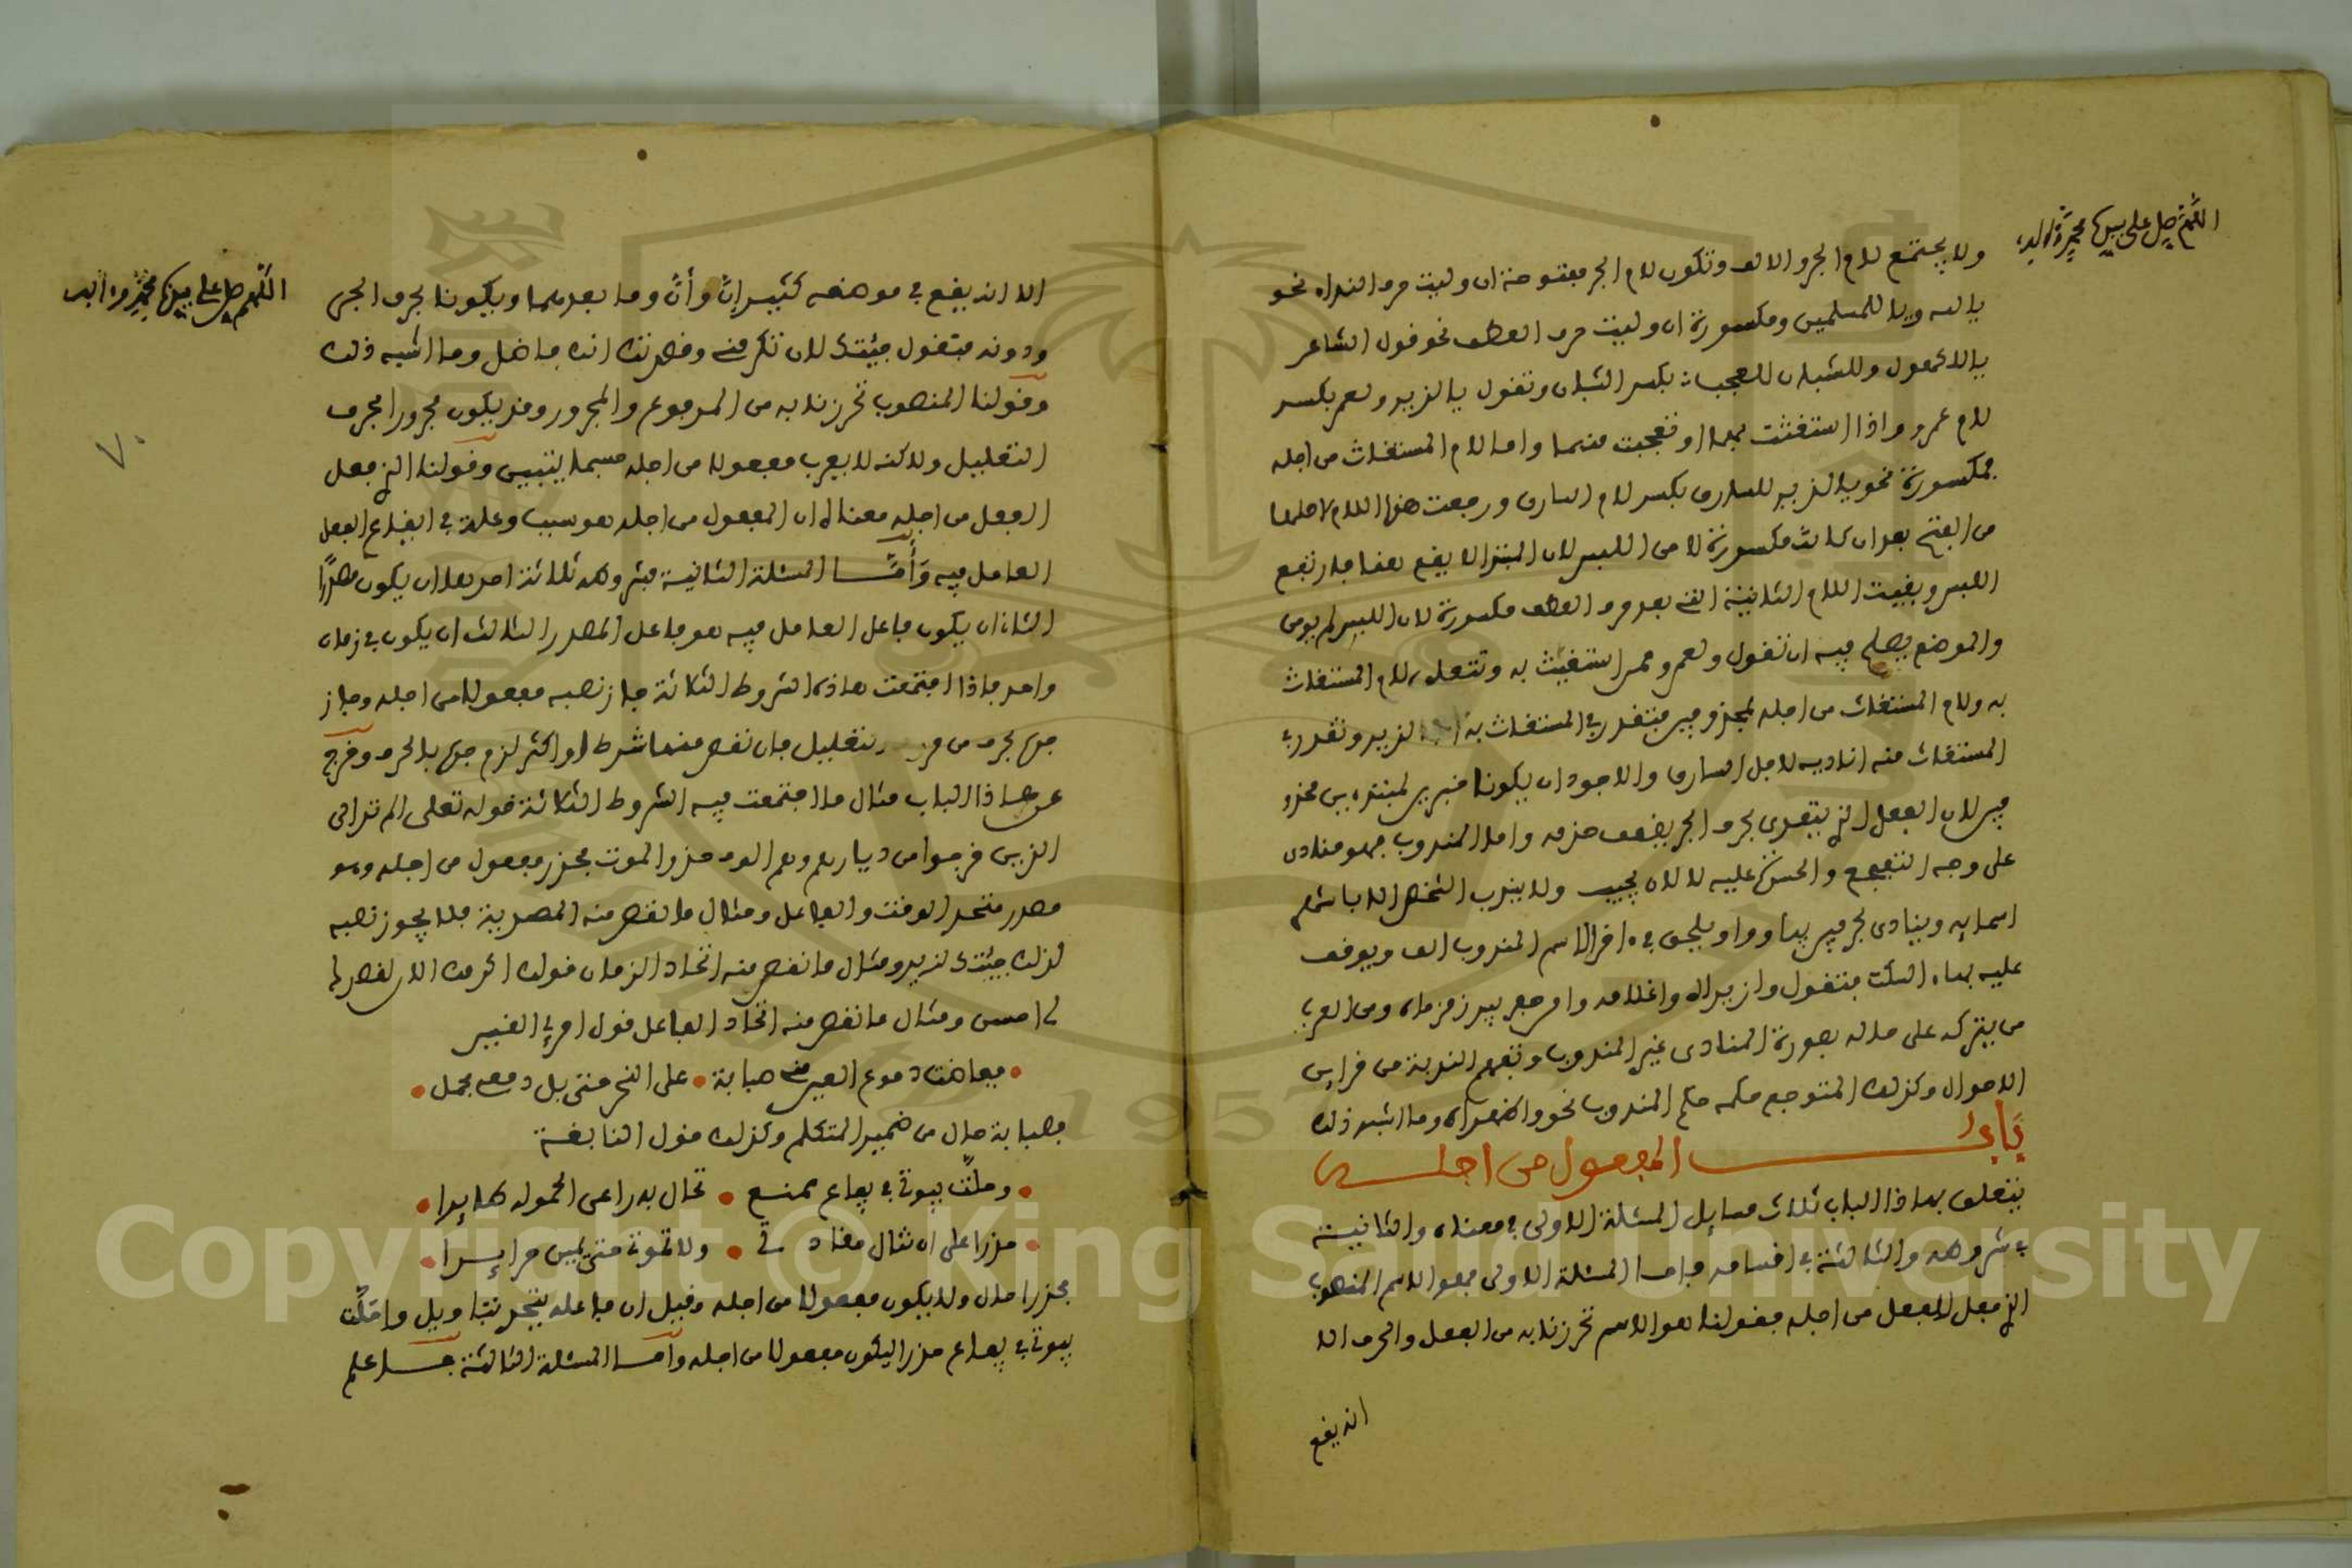 اللهم صل على سيدنا محمد وآله
ولا يجتمع لام الجر والالف وتكون لام الجر مفتوحة ان وليت حرف النداء نحو
يا لله ويا للمسلمين ومكسورة ان وليت حرف العطف نحو قول الشاعر
يا للكهول وللشبان للعجب بكسر الشبان وتقول يا لزيد ولعمر بكسر
لام عمرو اذا استغثت بهما او تعجبت منهما واما لام المستغاث من اجله
فمكسورة نحو يا لزيد للسارق بكسر لام السارق ورجعت هذه اللام لاصلها
من الفتح بعد ان كانت مكسورة لامن اللبس لان المبتدا لا يقع هنا فارتفع
اللبس وبقيت اللام الثانية التي بعد حرف العطف مكسورة لان اللبس لم يومن
والموضع يصلح فيه ان تقول ولعمرو ممن استغيث به وتتعلق لام المستغاث
به ولام المستغاث من اجله بمحذوفين فتقدر في المستغاث به لزيد وتقدر في
المستغاث منه اناديه لاجل السارق والاجود ان يكونا خبرين لمبتدءين محذو
فين لان الفعل الذي يتعدى بحرف الجر يضعف حذفه واما المندوب فهو منادى
على وجه التفجع والحسرة عليه لا لان يجيب ولا يندب الشخص الا باشهر
اسمايه وينادى بحرفين يا ووا ويلحق في ءاخر الاسم المندوب الف ويوقف
عليه بهاء السكت فتقول وازيداه واغلامه وامن حفر بير زمزماه ومن العرب
من يتركه على حاله بصورة المنادى غير المندوب وتفهم الندبة من قراين
الاحوال وكذلك المتوجع حكمه حكم المندوب نحو واظهراه وما اشبه ذلك
باب المفعول من اجله
يتعلق بهاذا الباب ثلاث مسايل المسئلة الاولى في معناه والثانية
في شروطه والثالثة في اقسامه فاما المسئلة الاولى فهو الاسم المنصوب
الذي فعل الفعل من اجله فقولنا هو الاسم تحرزنا به من الفعل والحرف الا
انه يقع
اللهم صل على سيدنا محمد وءاله
الا انه يقع في موضعه كثيرا إنَّ وأنَّ وما بعدهما ويكونا بحرف الجر
ودونه فتقول جئتك لان تكرمني وقصدتك انك فاضل وما اشبه ذلك
وقولنا المنصوب تحرزنا به من المرفوع والمجرور وقد يكون مجرورا بحرف
التعليل ولاكنه لا يعرب مفعولا من اجله حسبما يتبين وقولنا الذي فعل
الفعل من اجله معناه ان المفعول من اجله هو سبب وعلة في ايقاع الفعل
العامل فيه وأمَّا المسئلة الثانية فشروطه ثلاثة احدها ان يكون مصدرًا
الثاني ان يكون فاعل العامل فيه هو فاعل المصدر الثالث ان يكون في زمان
واحد فاذا اجتمعت هاذه الشروط الثلاثة جاز نصبه مفعولا من اجله وجاز
جره بحرف من التعليل فان نقص منها شرط او اكثر لزم جره بالحرف وخرج
عن هاذا الباب مثال ما اجتمعت فيه الشروط الثلاثة قوله تعلى الم تر الى
الذين خرجوا من ديارهم وهم الوف حذر الموت فحذر مفعول من اجله وهو
مصدر متحد الوقت والفاعل ومثال ما نقص منه المصدرية فلا يجوز نصبه
لذلك جيتك لزيد ومثال ما نقص منه اتحاد الزمان قولك اكرمك الان لقصدك
لي امس ومثال ما نقص منه اتحاد الفاعل قول امرئ القيس
ففاضت دموع العين مني صبابة على النحر حتى بل دمعي محمل
فصبابة حال من ضمير المتكلم وكذلك قول النابغة
وحلت بيوتي في يفاع ممنع تخال به راعي الحمولة طايرا
حذرا على ان لا تنال مقادتي ولا نسوتي حتى يمتن حرايرا
فحذرا حال ولا يكون مفعولا من اجله وقيل ان فاعله يتحد بتاويل واحللت
بيوتي في يفاع حذرا ليكون مفعولا من اجله وامـا المسئلة الثالثة فـاعلم